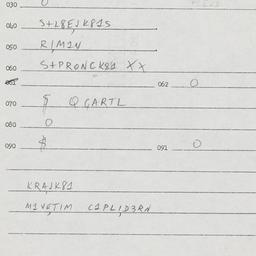 030 O
040 S+L8EJK81S
050 R/M1N
060 S+PRONCK81 XX
061 062 O
070 Q CARTL
080 O
090 $ 091 O
KRAJK81
M1VETIM C1PLID3RN